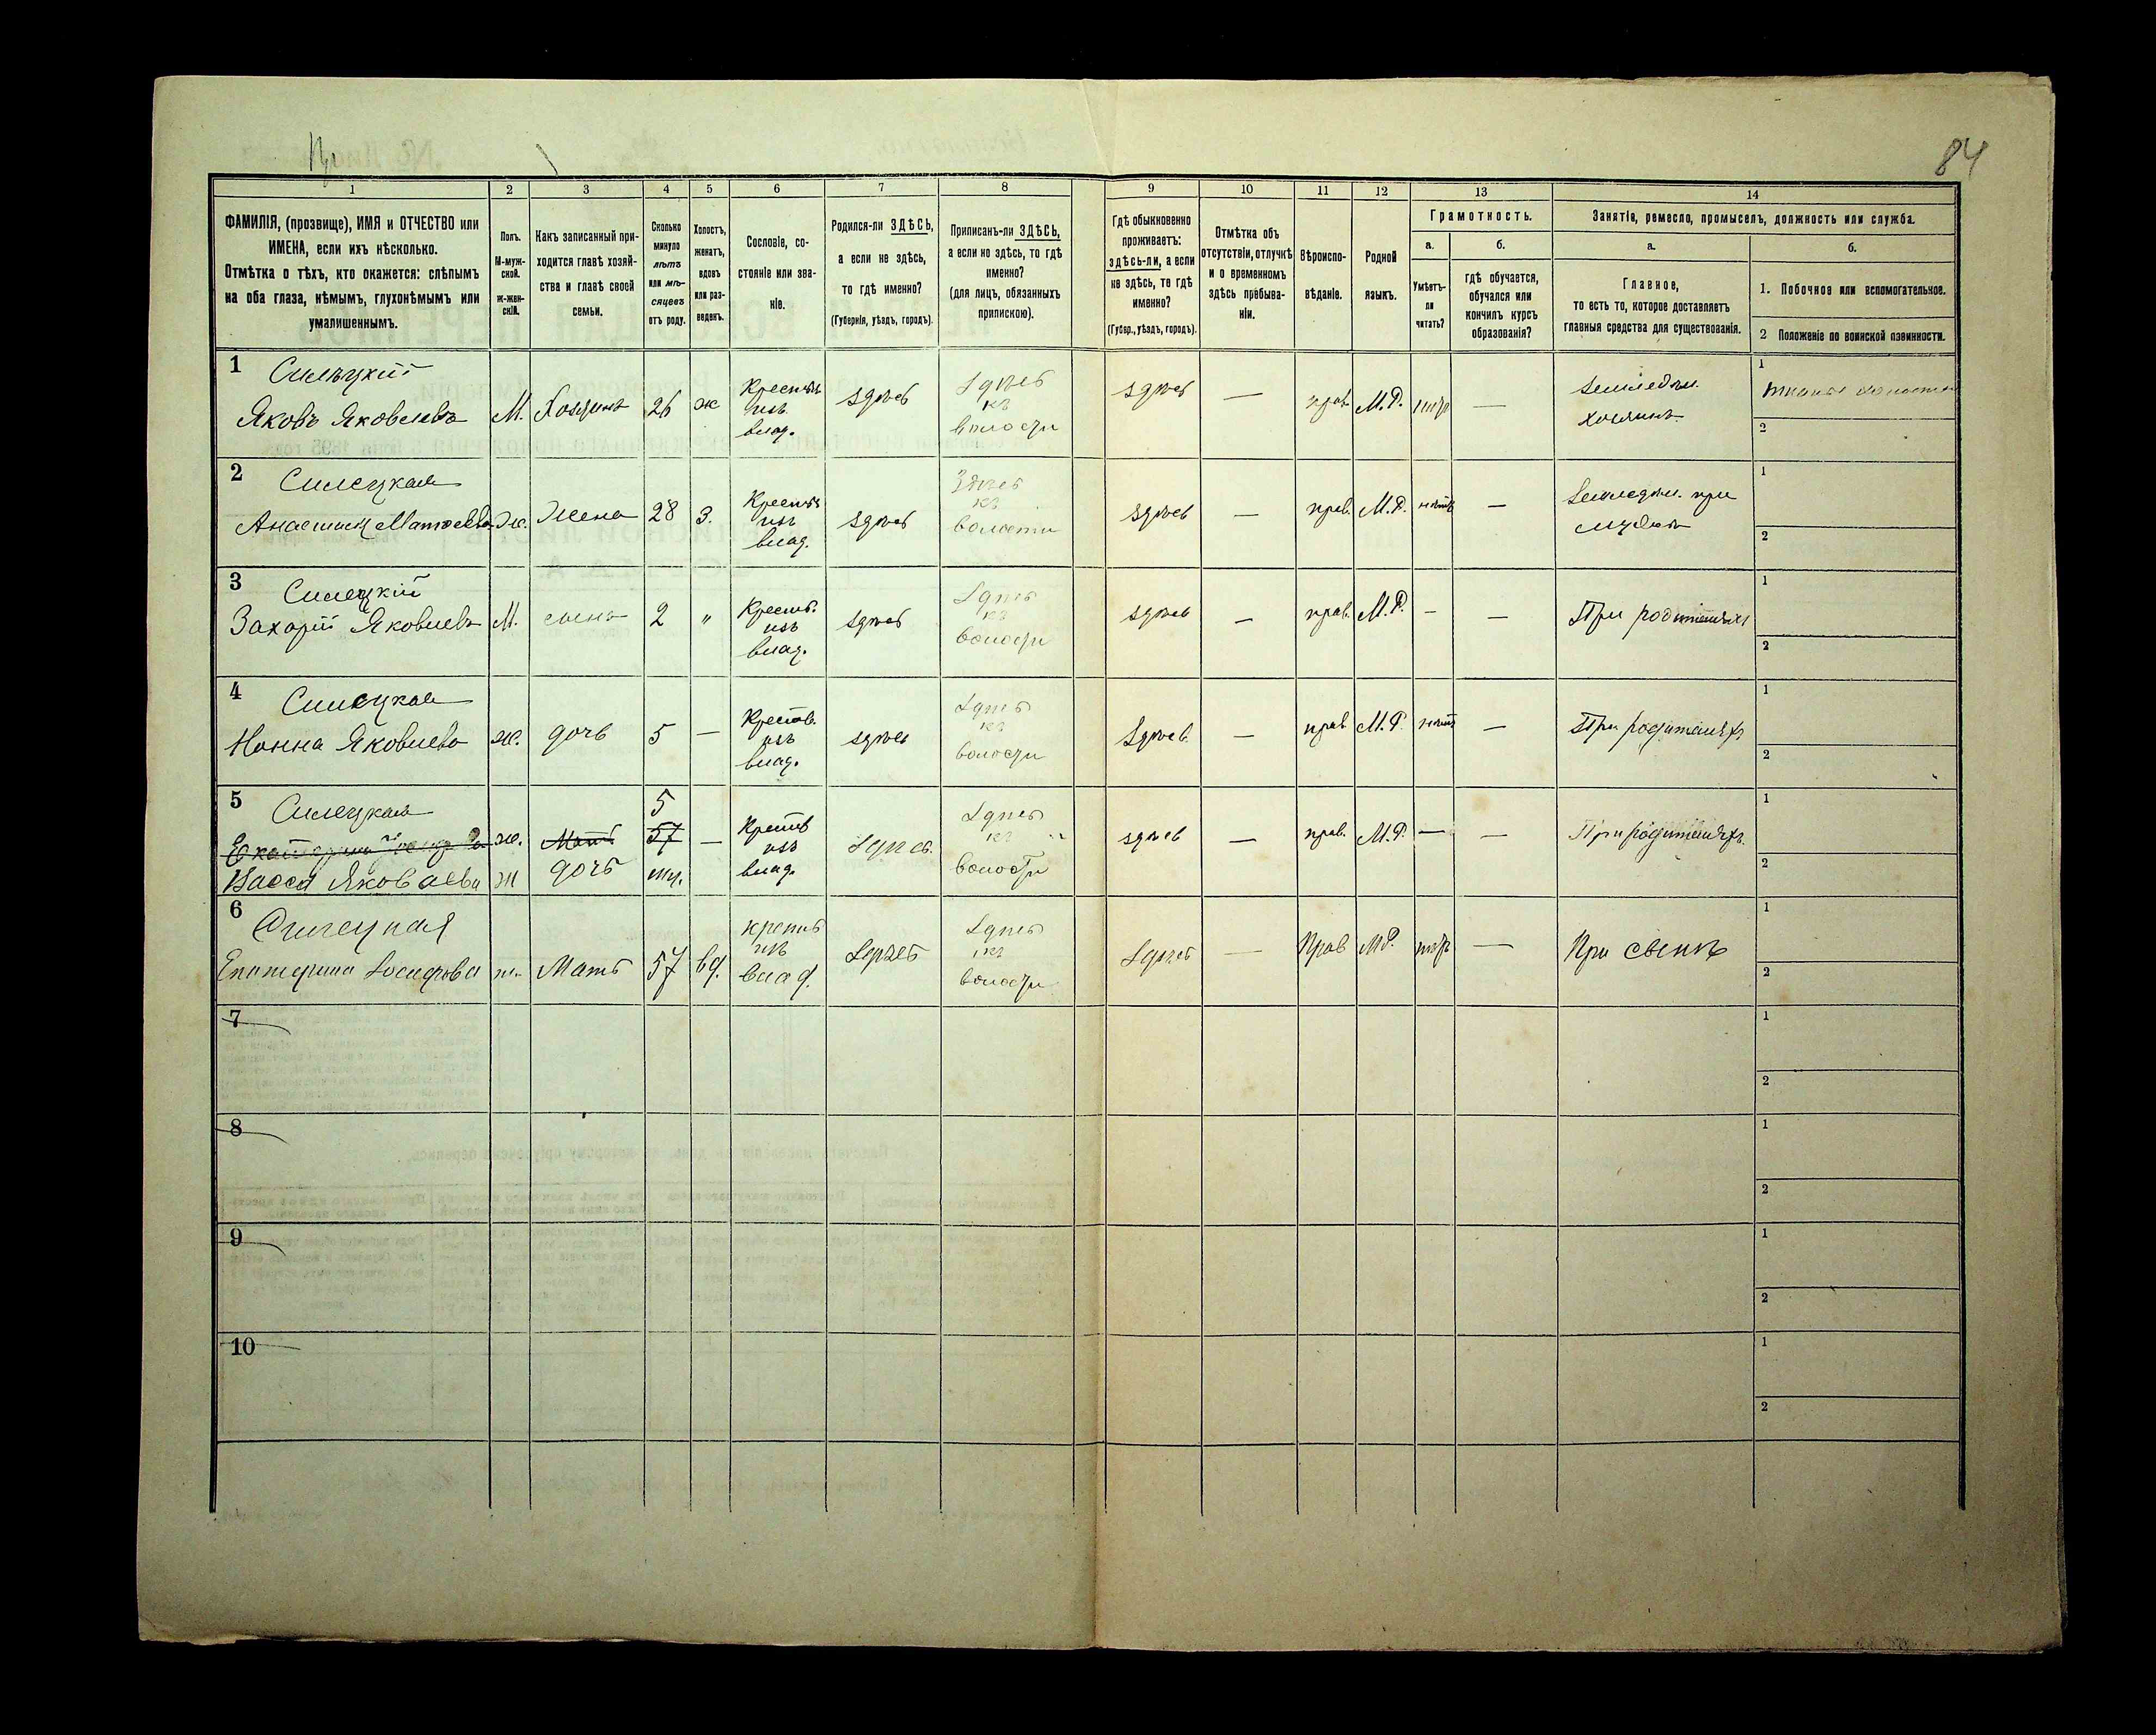 84
1 2 3 4 5 6 7 8 9 10 11 12 13 14
ФАМИЛІЯ, (прозвище), ИМЯ и ОТЧЕСТВО или
ИМЕНА, если ихъ нѣсколько.
Отмѣтка о тѣхъ, кто окажется: слѣпымъ
на оба глаза, нѣмымъ, глухонѣмымъ или
умалишеннымъ.
Полъ.
М-муж-
ской.
ж-жен-
скій.
Какъ записанный при-
ходится главѣ хозяй-
ства и главѣ своей
семьи.
Сколько
минуло
лѣтъ
или мѣ-
сяцевъ
отъ роду.
Холостъ,
женатъ,
вдовъ
или раз-
веденъ.
Сословіе, со-
стояніе или зва-
ніе.
Родился-ли ЗДѢСЬ,
а если не здѣсь,
то гдѣ именно?
(Губернія, уѣздъ, городъ).
Приписанъ-ли ЗДѢСЬ,
а если не здѣсь, то гдѣ
именно?
(для лицъ, обязанныхъ
припискою).
Гдѣ обыкновенно
проживаетъ:
здѣсь-ли, а если
не здѣсь, то гдѣ
именно?
(Губер., уѣздъ, городъ).
Отмѣтка объ
отсутствіи, отлучкѣ
и о временномъ
здѣсь пребыва-
ніи.
Вѣроиспо-
вѣданіе.
Родной
языкъ.
Грамотность.
а.
Умѣетъ-
ли
читать?
б.
гдѣ обучается,
обучался или
кончилъ курсъ
образованія?
Занятіе, ремесло, промыселъ, должность или служба.
а.
Главное,
то есть то, которое доставляетъ
главныя средства для существованія.
б.
1. Побочное или вспомогательное.
2 Положеніе по воинской повинности.
1 Силецкій
Яковъ Яковлевъ М. Хозяинъ 26 ж Крестьян. изъ влад. здѣсь Здѣсь къ волости здѣсь — прав. М.Р. нѣтъ — Земледѣл. хозяинъ 1
2
2 Силецкая
Анастасія Матвѣева Ж. Жена 28 З. Крестьян. изъ влад. здѣсь Здѣсь къ волости здѣсь — прав. М.Р. нѣтъ — Земледѣл. при мужѣ 1
2
3 Силецкій
Захарій Яковлевъ М. сынъ 2 „ Крестьн. изъ влад. здѣсь Здѣсь къ волости здѣсь — прав. М.Р. — — При родителяхъ 1
2
4 Силецкая
Нонна Яковлева ж. дочь 5 — Крестьн. изъ влад. здѣсь Здѣсь къ волости здѣсь — прав М.Р. нѣтъ — При родителяхъ 1
2
5 Силецкая 5
Екатерина ж. Мать 57 — Крестьн изъ влад. Здѣсь Здѣсь къ волости здѣсь — прав. М.Р. — — При родителяхъ 1
Васса Яковлева ж дочь мц. 2
6 Силецкая
Екатерина Іосифова ж. Мать 57 вд. крестьн изъ влад. Здѣсь Здѣсь къ волости Здѣсь — Прав М.Р. нѣтъ — При сынѣ 1
2
7 1
2
8 1
2
9 1
2
10 1
2